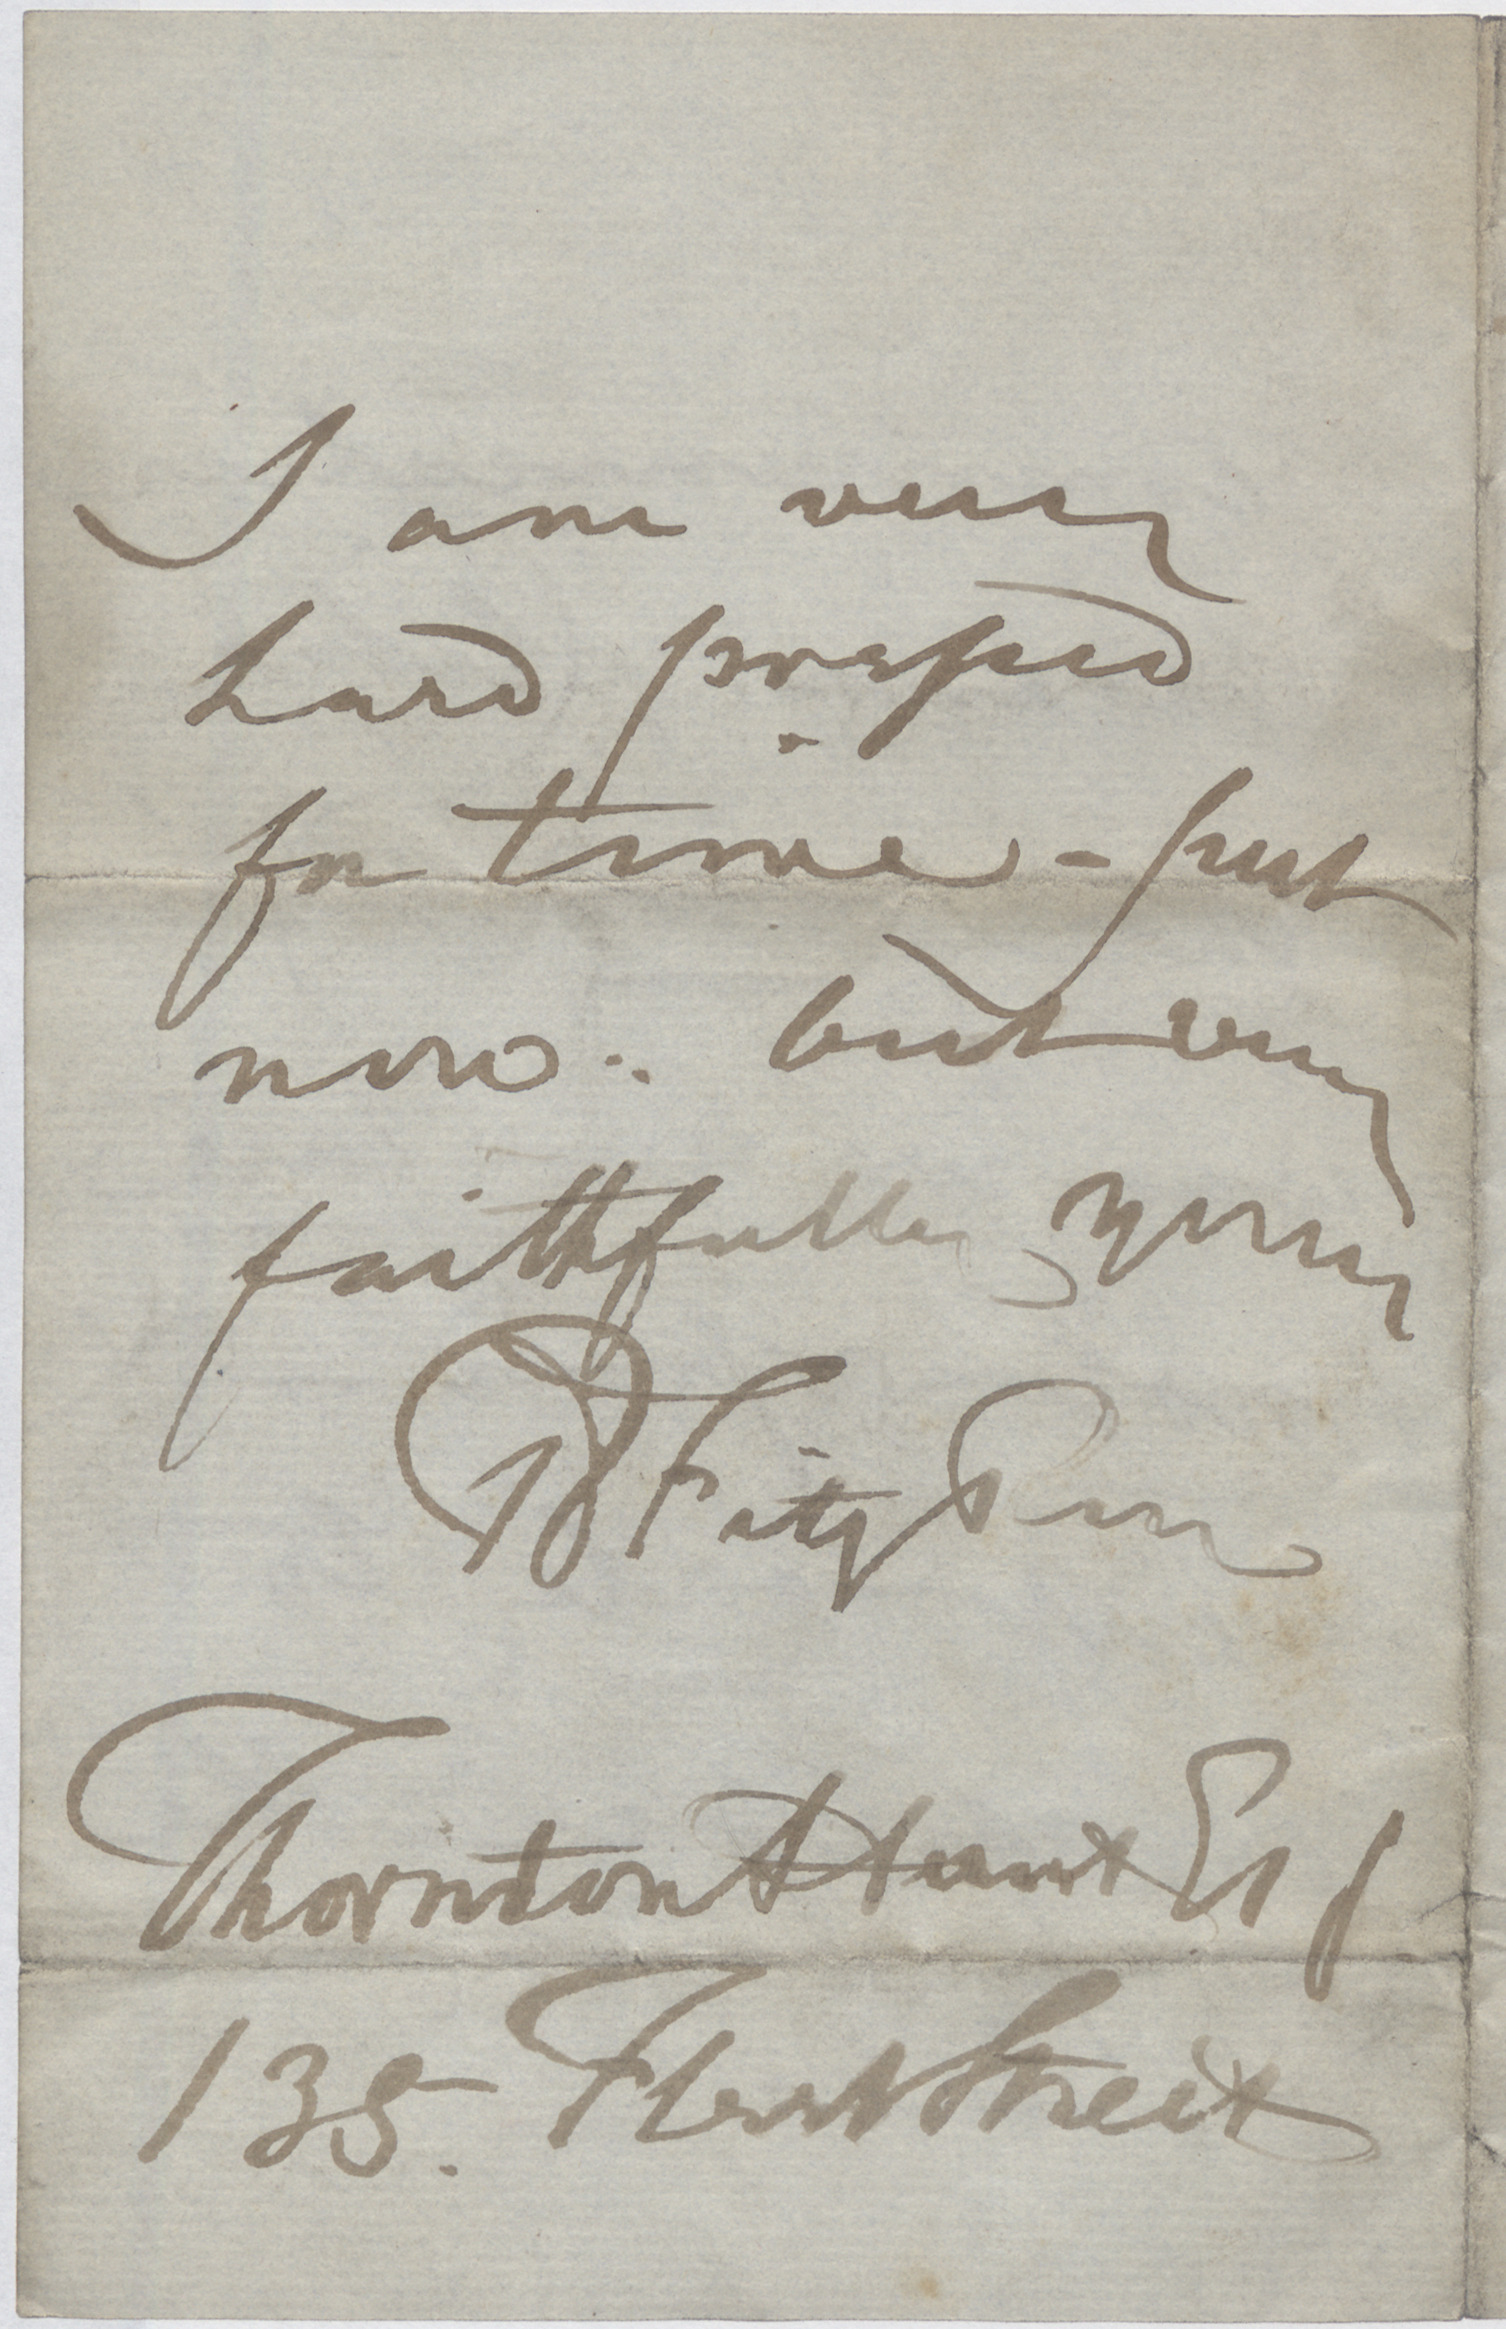 I am very
hard pressed
for time - just
now. but very
faithfully yours
Thornton Hunt Esq
135. Fleet Street